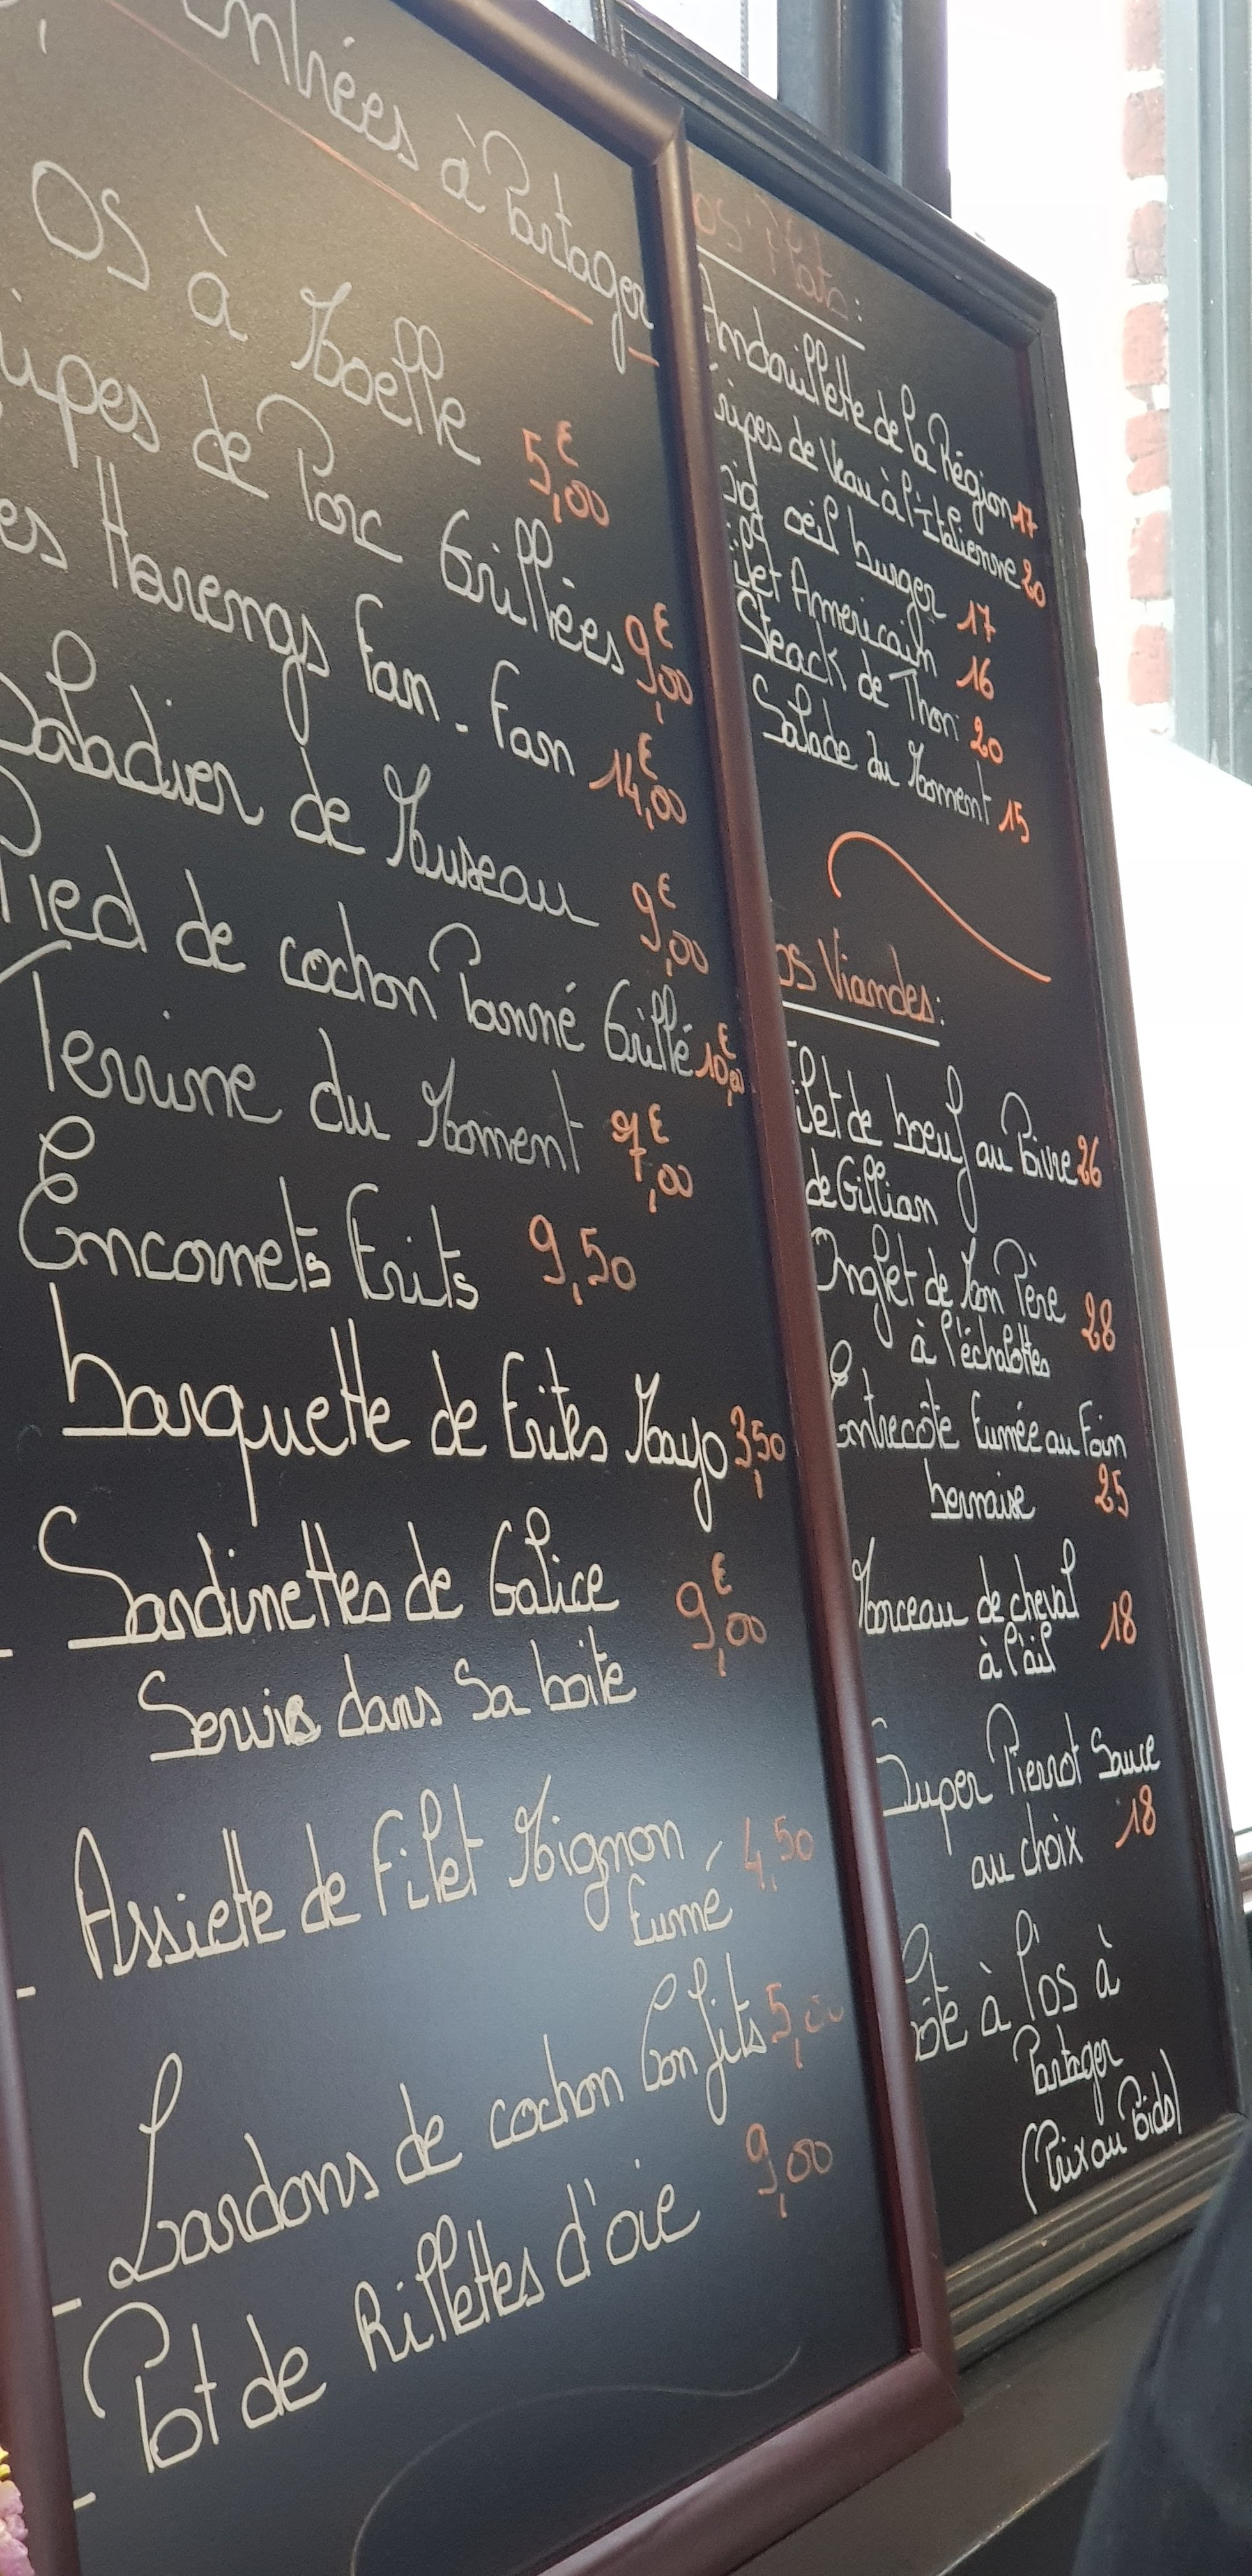 Entrées à Partager
OS à Moelle 5,00€
de Porc Grillées 9,00€
Harengs Fan-Fan 14,00€
Saladier de Museau 9,00€
Pied de cochon Panné Grillé 10,00€
Terrine du Moment 7,00€
Encornets Frits 9,50
barquette de Frites Mayo 3,50
- Sardinettes de Galice 9,00€
Servis dans Sa boite
- Assiette de Filet Mignon 4,50
Fumé
- Lardons de cochon Confits 5,00
- Pot de Rillettes d'oie 9,00
Plats :
Andouillette de la Région 17
Tripes de Veau à l'Italienne 20
œil burger 17
Filet Americain 16
Steack de Thon 20
Salade du Moment 15
Viandes :
Filet de boeuf au Poivre 26
de Gillian
Onglet de Mon Père 28
à l'échalottes
Entrecôte Fumée au Foin
bernaise 25
Morceau de cheval 18
à l'ail
Super Pierrot Sauce
au choix 18
Côte à l'os à
Partager
(Prix au Poids)